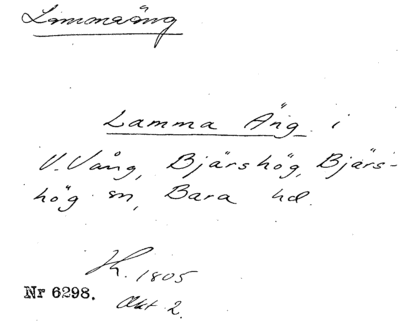 Limmaäng
Lamma Äng i
V. Vång, Bjärshög, Bjärs-
hög sn, Bara hd.
K. 1805
Nr 6298.
Akt 2.